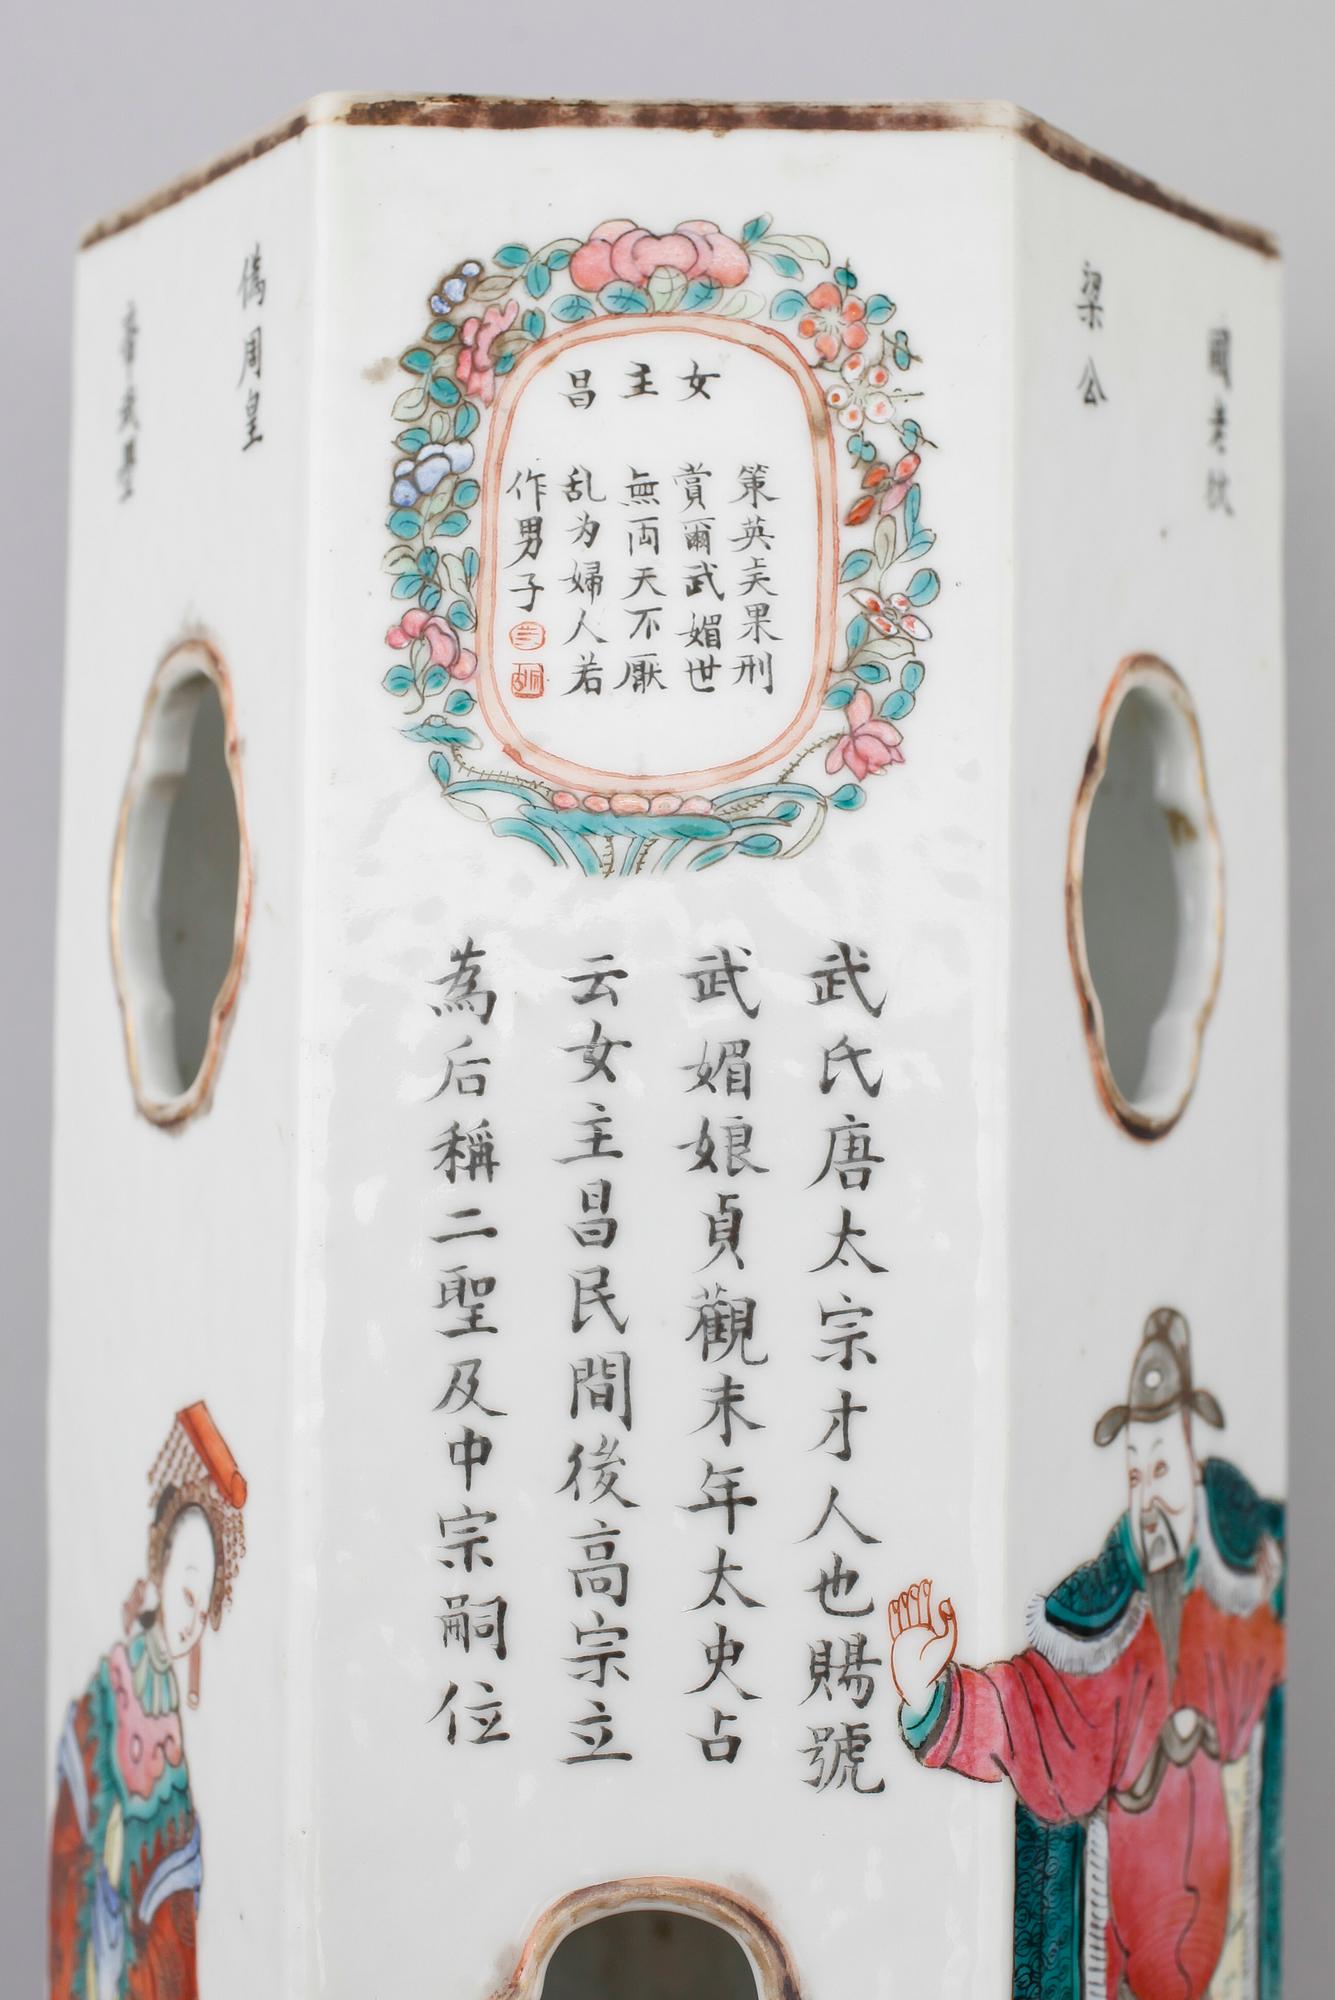 國老狄
梁公
女主昌
策英果刑
賞爾武媚世
無両天不厭
乱为婦人若
作男子
武氏唐太宗才人也賜號
武媚娘貞觀末年太史占
云女主昌民間後高宗立
為后稱二聖及中宗嗣位
偽周皇
帝武曌